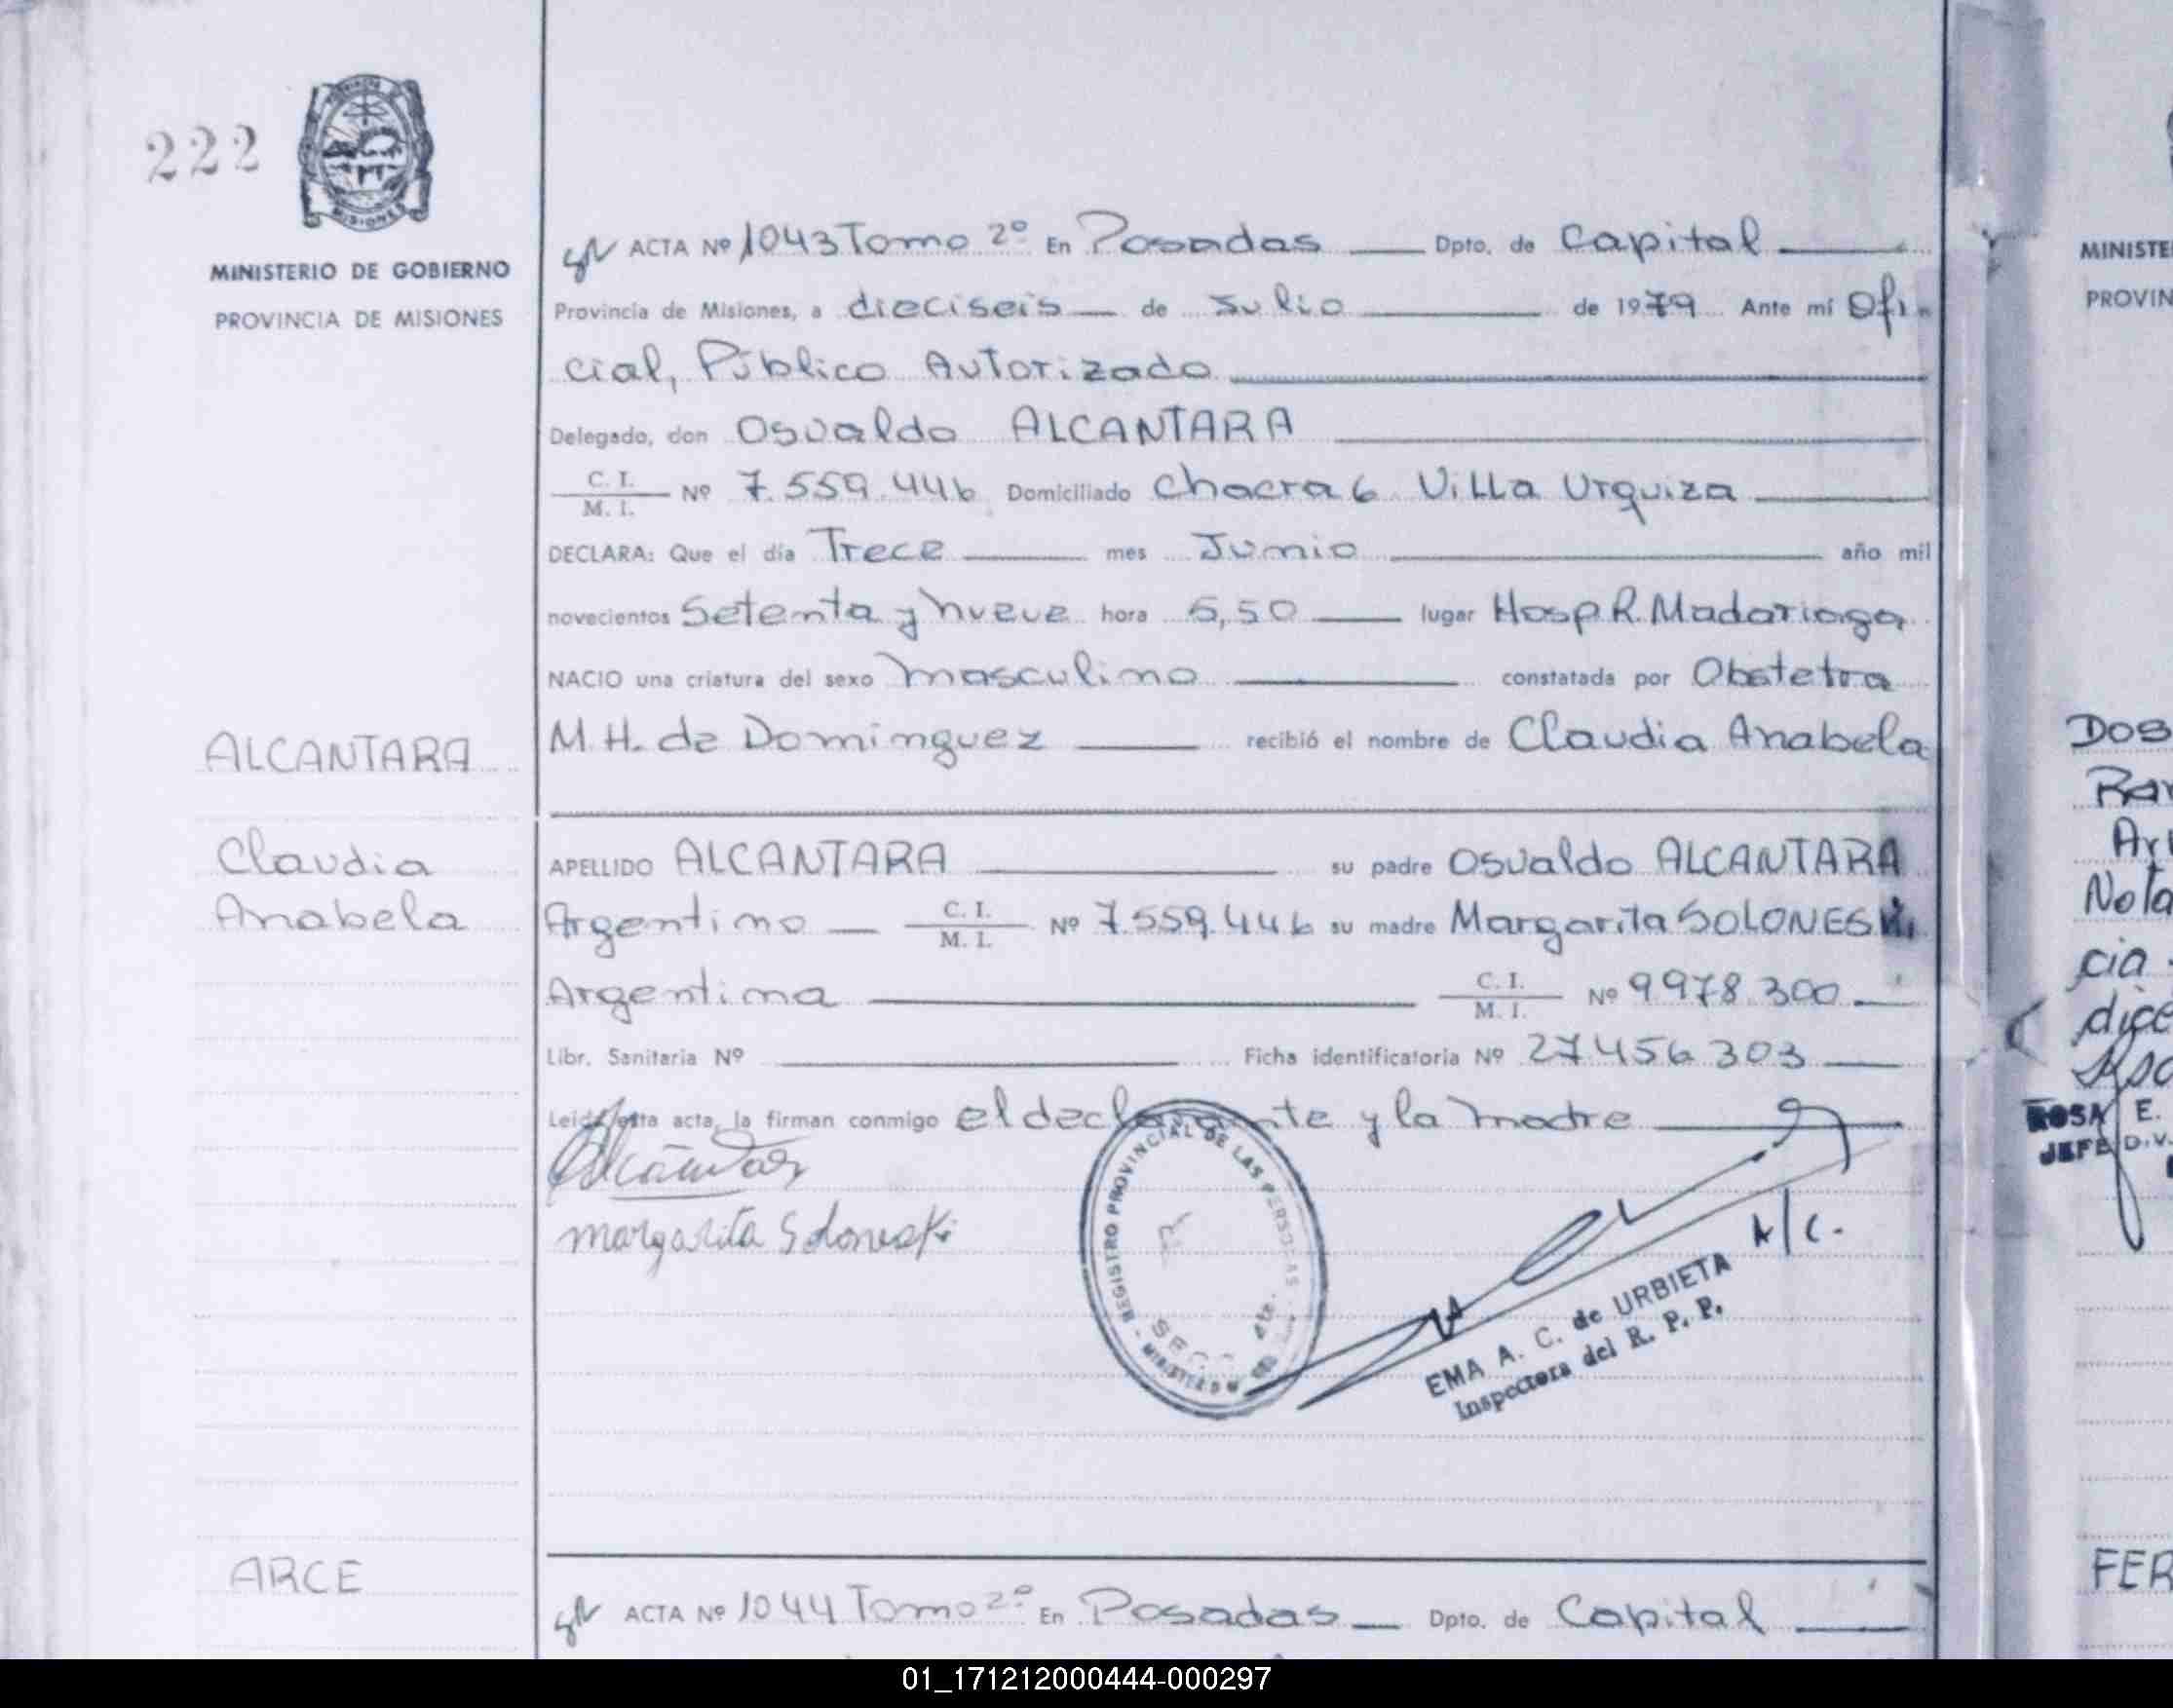 222
MISIONES
MINISTERIO DE GOBIERNO
PROVINCIA DE MISIONES
ACTA Nº 1043 Tomo 2º En Posadas Dpto. de Capital
Provincia de Misiones, a dieciseis de Julio de 1979 Ante mí Ofi-
cial, Público Autorizado
Delegado, don Osvaldo ALCANTARA
C. I.
M. I.
Nº 7.559.446 Domiciliado Chacra 6 Villa Urquiza
DECLARA: Que el día Trece mes Junio año mil
novecientos Setenta y nueve hora 5,50 lugar Hosp R. Madariaga
NACIO una criatura del sexo masculino constatada por Obstetra
M.H. de Dominguez recibió el nombre de Claudia Anabela
ALCANTARA
Claudia
Anabela
APELLIDO ALCANTARA su padre Osvaldo ALCANTARA
Argentino C. I. M. I. Nº 7.559.446 su madre Margarita SOLONESKI
Argentina C. I. M. I. Nº 9978.300
Libr. Sanitaria Nº Ficha identificatoria Nº 27.456.303
Leida esta acta, la firman conmigo el declarante y la madre
Alcantar
margarita Soloneski
REGISTRO PROVINCIAL DE LAS PERSONAS
A/C.
EMA A. C. de URBIETA
Inspectora del R. P. P.
ARCE
ACTA Nº 1044 Tomo 2º En Posadas Dpto. de Capital
MINISTE
PROVIN
DOS
Ar
Nota
cia
dice
ROSA E.
JEFE DIV.
FER
01_171212000444-000297